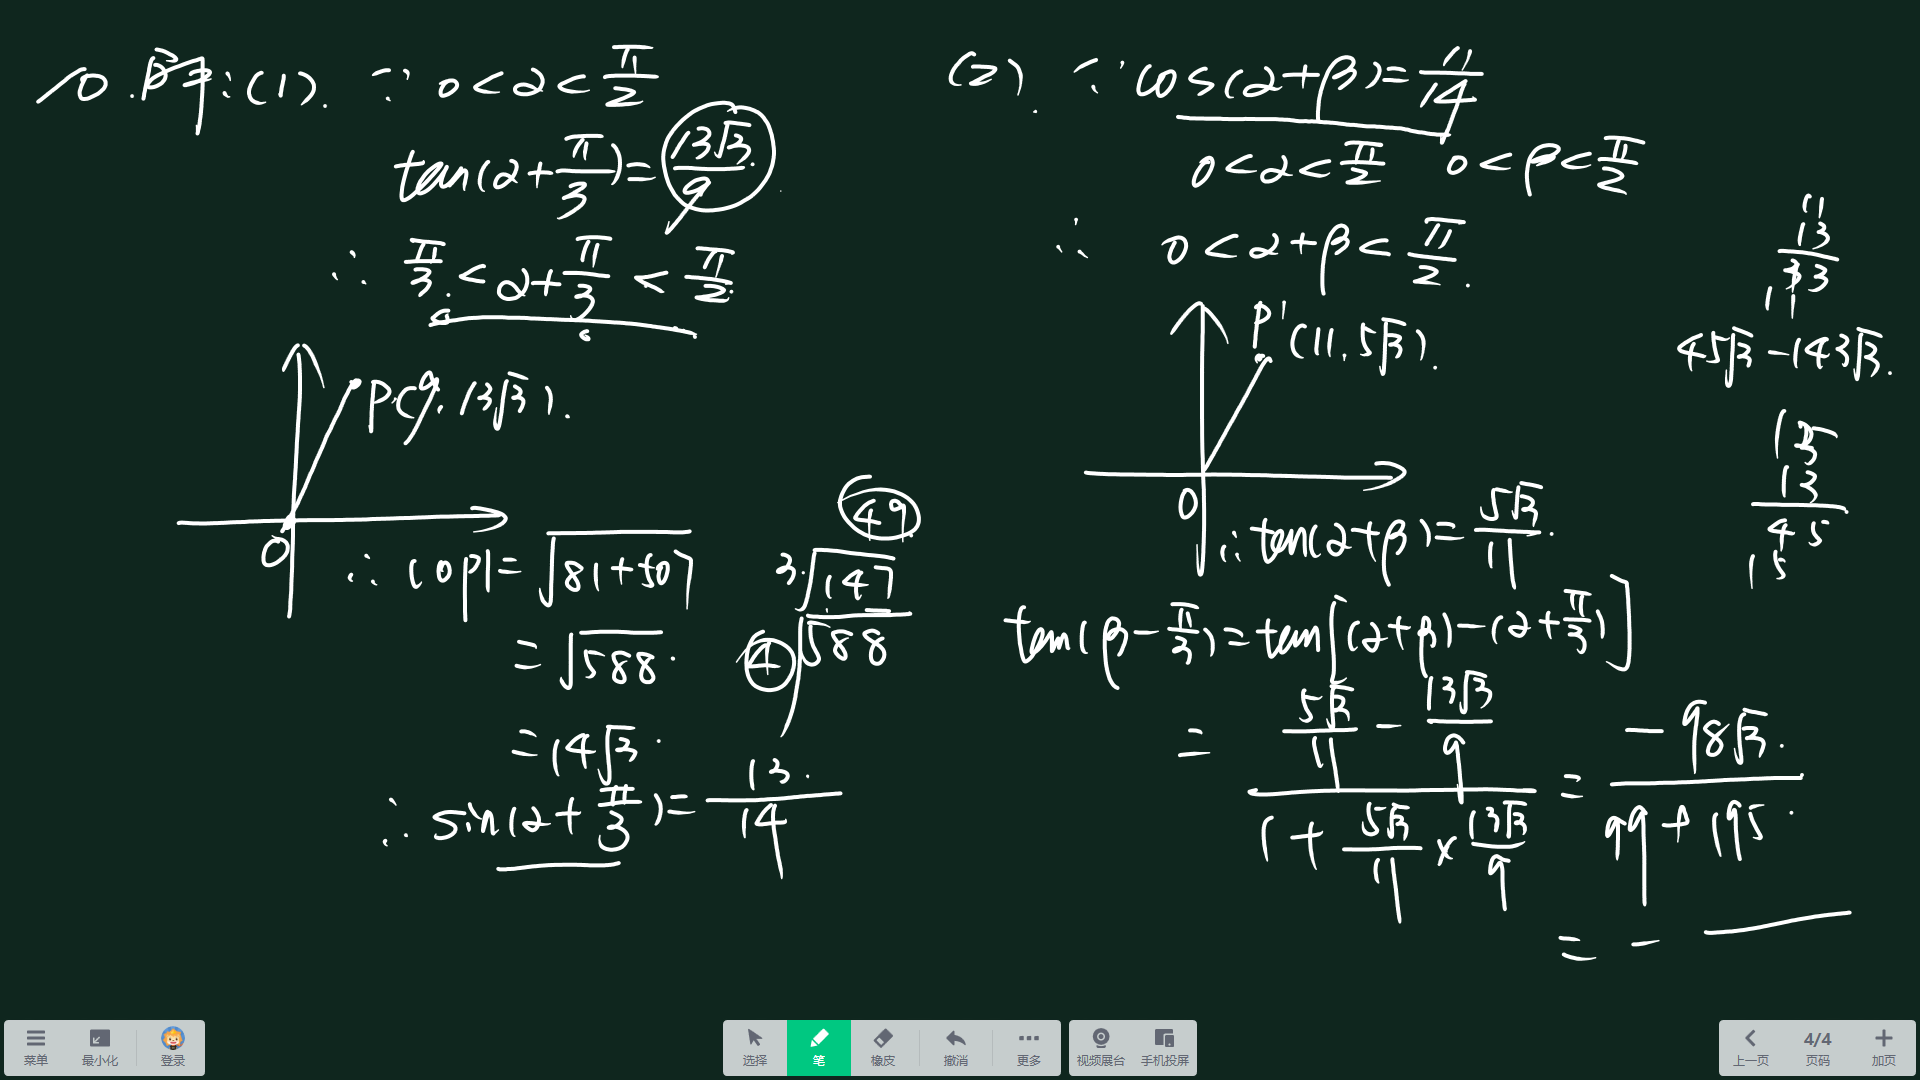 10. 解:(1). ∵ 0<α<π/2
tan(α+π/3)=13√3/9
∴ π/3<α+π/3<π/2.
P(9,13√3).
O
∴ |OP|=√81+507
=√588.
=14√3.
49
3√147
4√588
∴ sin(α+π/3)=13/14
(2). ∵ cos(α+β)=11/14
0<α<π/2 0<β<π/2
∴ 0<α+β<π/2.
P'(11,5√3).
O
∴ tan(α+β)=5√3/11.
tan(β-π/3)=tan[(α+β)-(α+π/3)]
= (5√3/11 - 13√3/9)/(1+5√3/11×13√3/9) = -98√3/(99+195).
= -
11
13
33
11
45√3-143√3.
15
13
45
15
菜单
最小化
登录
选择
笔
橡皮
撤消
更多
视频展台
手机投屏
上一页
4/4
页码
加页